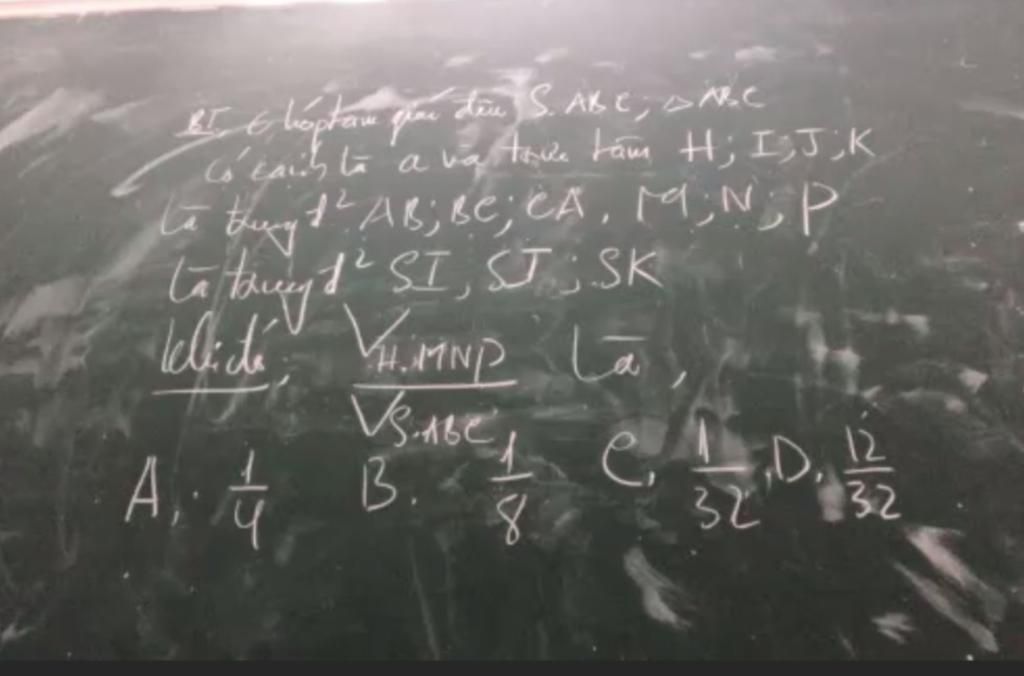 BT. C hóp tam giác đều S.ABC, △ ABC
có cạnh là a và trực tâm H; I; J; K
là trung đ² AB; BC; CA. M; N; P
là trung đ² SI, SJ; SK
khi đó, V_{H.MNP} / V_{S.ABC} là,
A. 1/4 B. 1/8 C. 1/32 D. 12/32